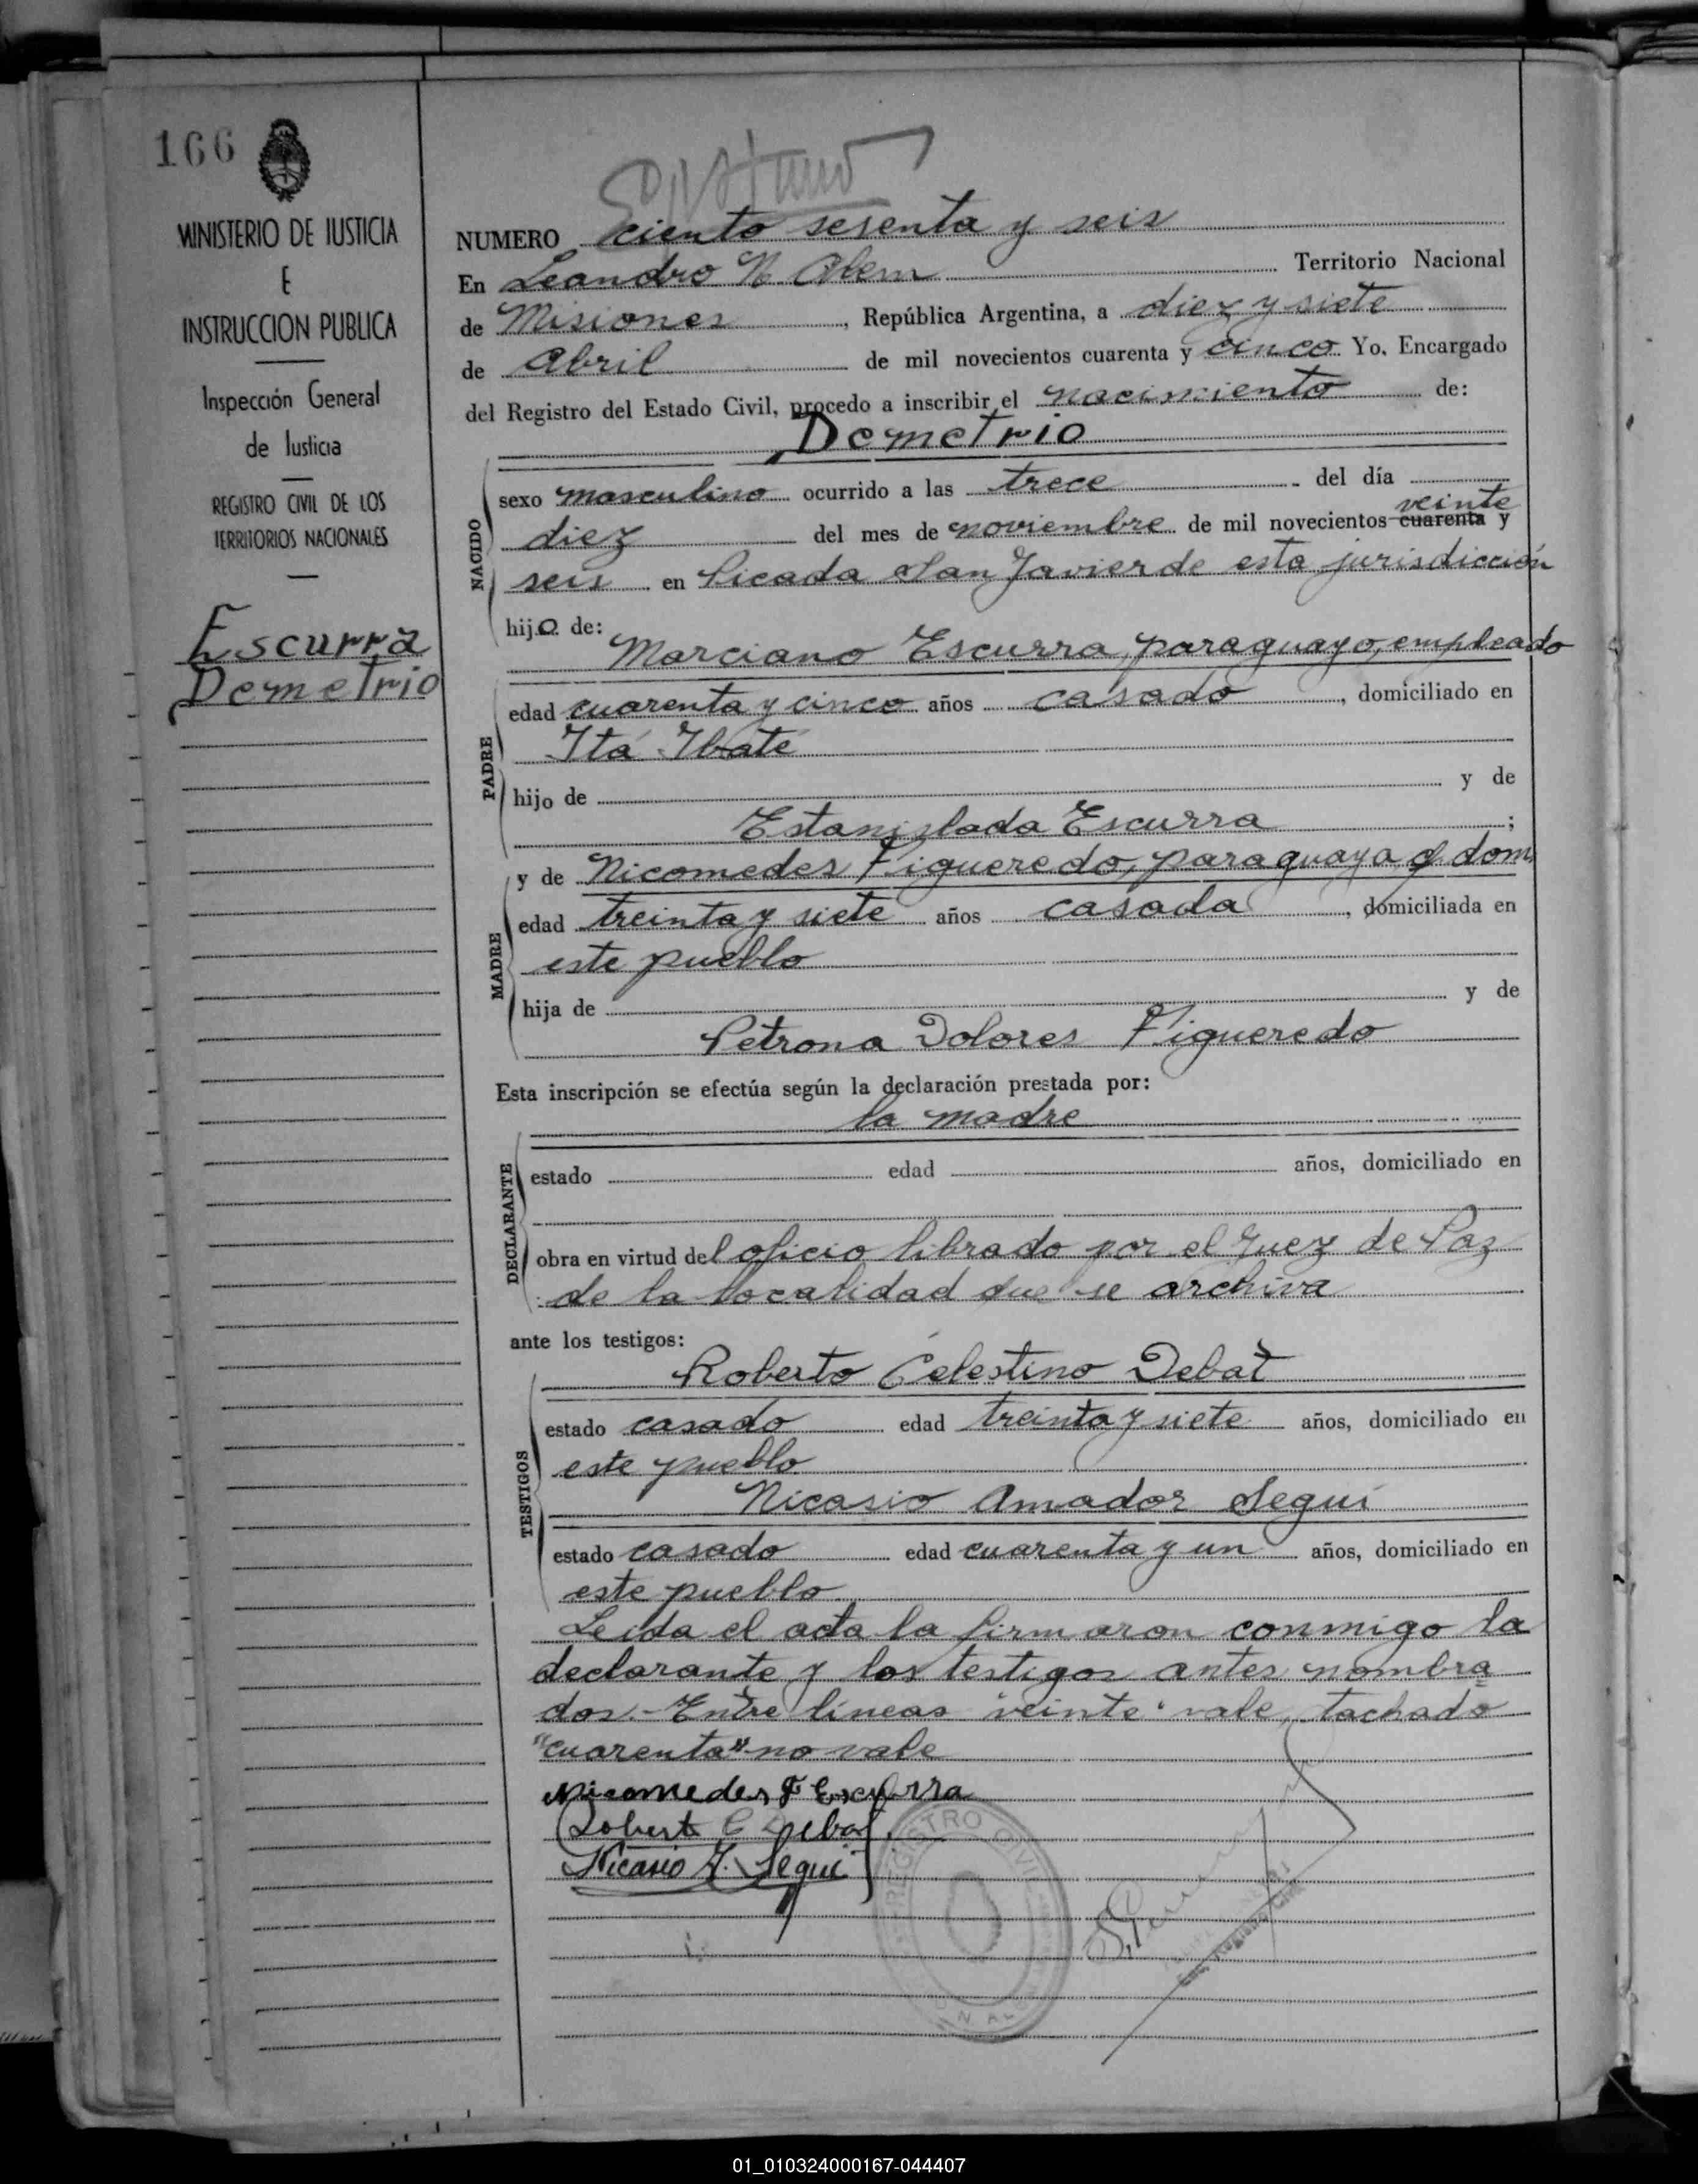 166
MINISTERIO DE JUSTICIA
E
INSTRUCCION PUBLICA
Inspección General
de Justicia
REGISTRO CIVIL DE LOS
TERRITORIOS NACIONALES
Escurra
Demetrio
NUMERO ciento sesenta y seis
En Leandro N. Alem Territorio Nacional
de Misiones, República Argentina, a diez y siete
de Abril de mil novecientos cuarenta y cinco Yo, Encargado
del Registro del Estado Civil, procedo a inscribir el nacimiento de:
Demetrio
NACIDO
sexo masculino ocurrido a las trece del día
veinte
diez del mes de noviembre de mil novecientos cuarenta y
seis en Picada San Javier de esta jurisdicción
hijo de:
Marciano Escurra, paraguayo, empleado
PADRE
edad cuarenta y cinco años casado, domiciliado en
Itá Ibaté
hijo de y de
Estanizlada Escurra;
MADRE
y de Nicomedes Figueredo, paraguaya q. dom.
edad treinta y siete años casada, domiciliada en
este pueblo
hija de y de
Petrona Dolores Figueredo
Esta inscripción se efectúa según la declaración prestada por:
la madre
DECLARANTE
estado edad años, domiciliado en
obra en virtud del oficio librado por el Juez de Paz
de la localidad que se archiva
ante los testigos:
Roberto Celestino Debat
TESTIGOS
estado casado edad treinta y siete años, domiciliado en
este pueblo
Nicasio Amador Seguí
estado casado edad cuarenta y un años, domiciliado en
este pueblo
Leída el acta la firmaron conmigo la
declarante y los testigos antes nombra
dos.- Entre líneas "veinte" vale, tachado
"cuarenta" no vale
Nicomedes F Escurra
Robert C Debat
Nicasio A. Segui
REGISTRO CIVIL
01_010324000167-044407